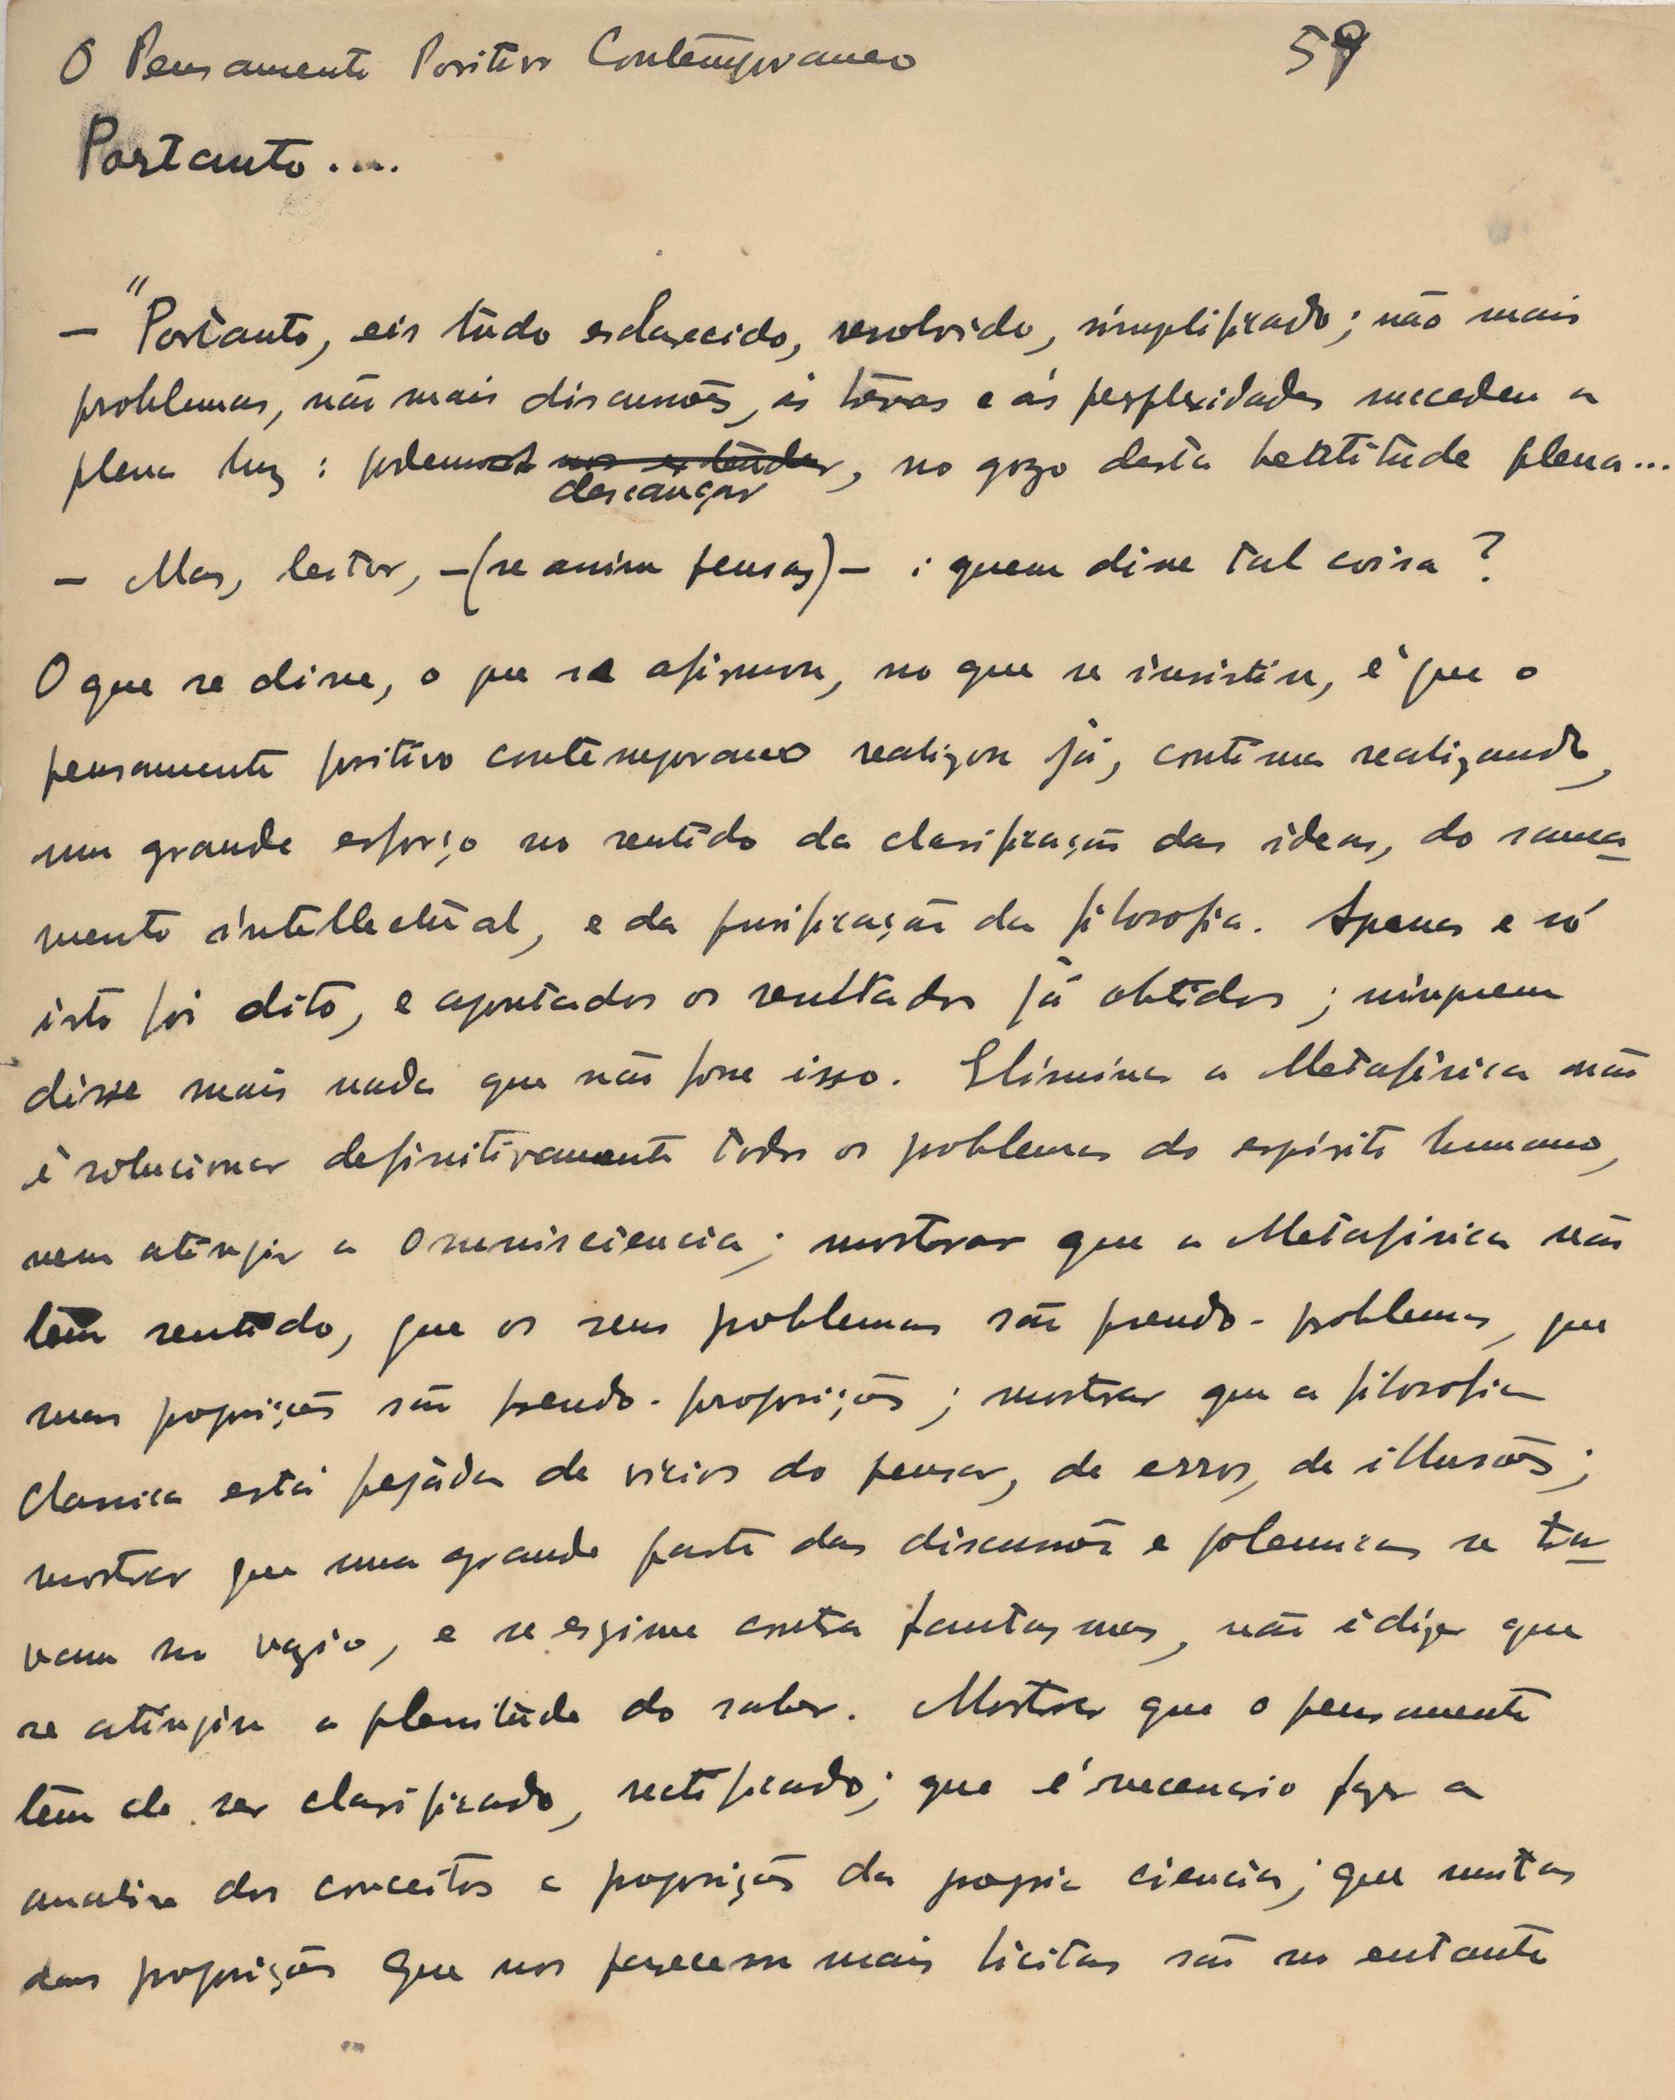 O Pensamento Positivo Contemporaneo 59
Portanto....
— "Portanto, eis tudo esclarecido, resolvido, simplificado; não mais
problemas, não mais discussões, ás trevas e ás perplexidades succedeu a
plena luz: podemos descançar, no gozo desta beatitude plena...
— Mas, leitor, —(se assim pensas)— : quem disse tal coisa?
O que se disse, o que se afirmou, no que se insistiu, é que o
pensamento positivo contemporaneo realizou já, continua realizando,
um grande esforço no sentido da clarificação das ideas, do sanea-
mento intellectual, e da purificação da filosofia. Apenas e só
isto foi dito, e apontados os resultados já obtidos; ninguem
disse mais nada que não fosse isso. Eliminar a Metafisica não
é solucionar definitivamente todos os problemas do espirito humano,
nem atingir a omnisciencia; mostrar que a Metafisica não
tem sentido, que os seus problemas são pseudo-problemas, que
suas proposições são pseudo-proposições; mostrar que a filosofia
classica está pejada de vicios do pensar, de erros, de illusões;
mostrar que uma grande parte das discussões e polemicas se tra-
vam no vazio, e se esgrime contra fantasmas, não é dizer que
se atingiu a plenitude do saber. Mostrar que o pensamento
tem de ser clarificado, rectificado; que é necessario fazer a
analise dos conceitos e proposições da propria ciencia; que muitas
das proposições que nos parecem mais licitas são no entanto